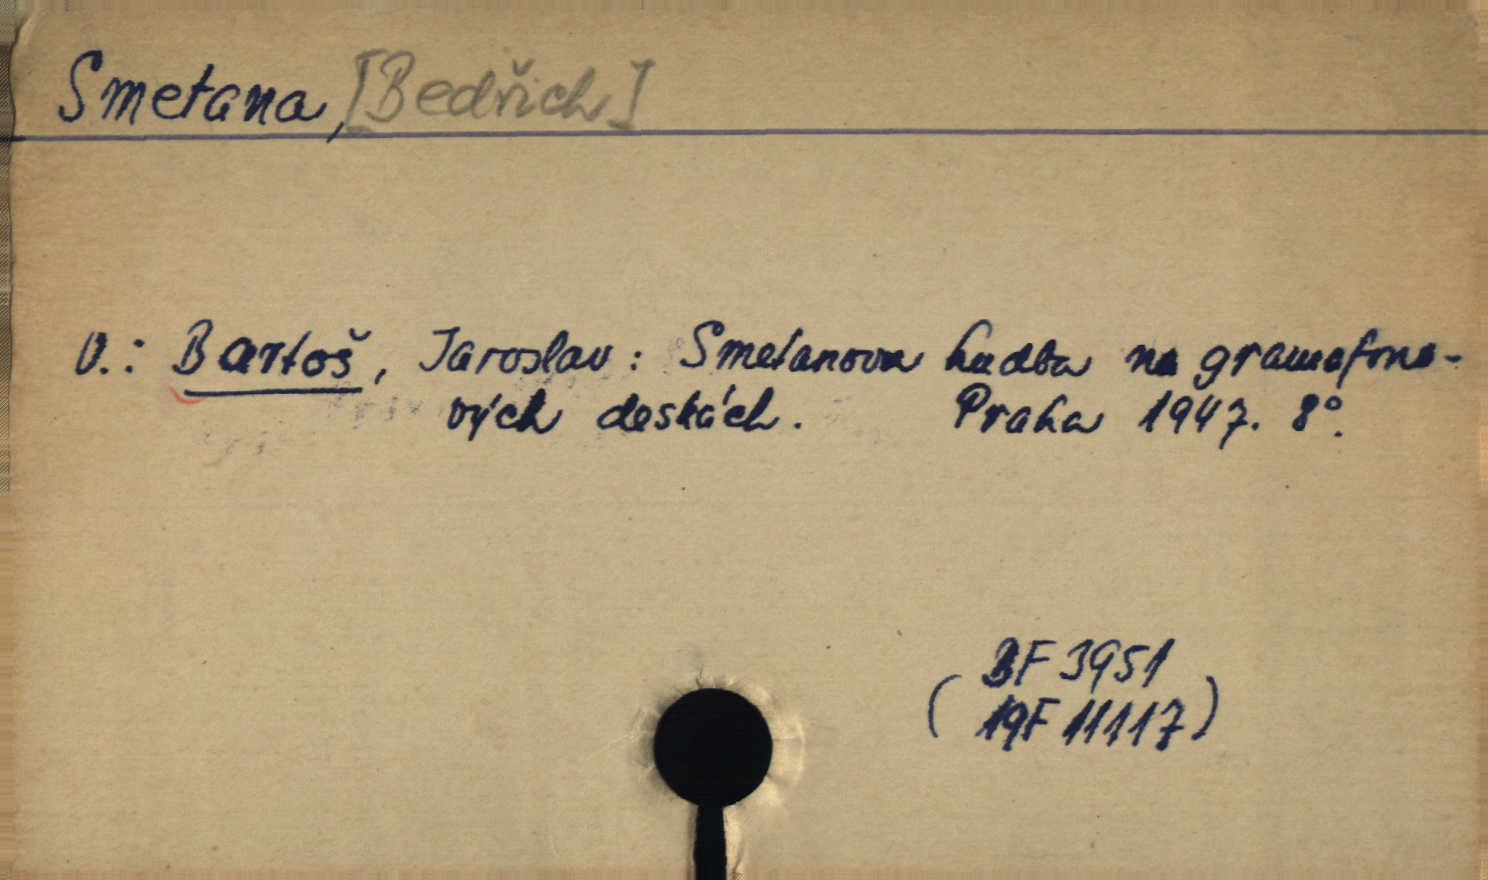 Smetana, [Bedřich]
V.: Bartoš, Jaroslav: Smetanova hudba na gramofono-
vých deskách. Praha 1947. 8°.
BF 3951
(19F 11117)